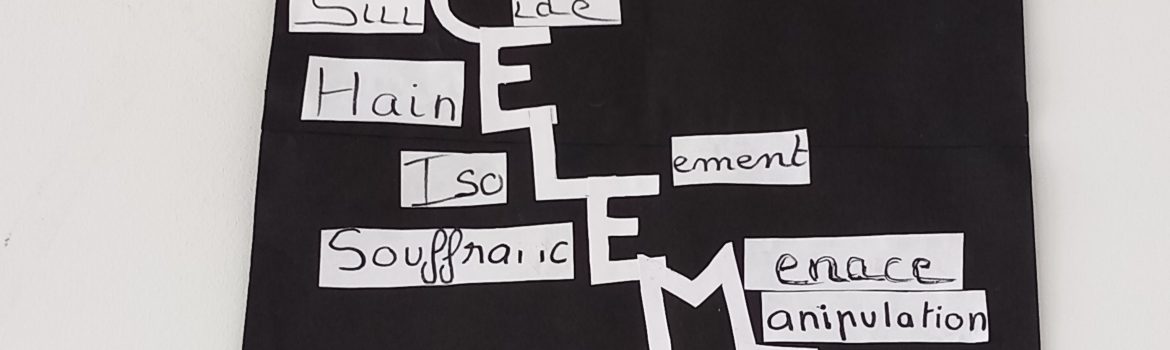 Suicide
HainE
IsoLement
SouffrancE
Menace
anipulation